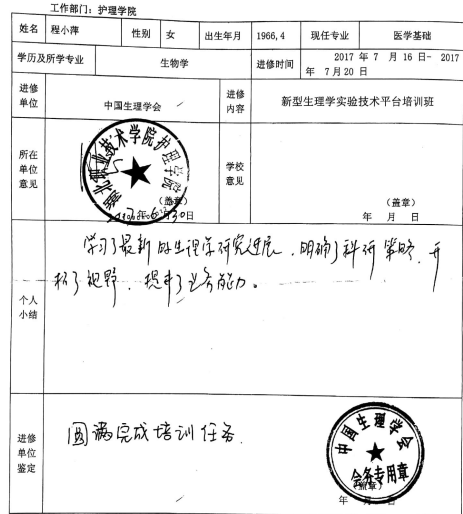 工作部门：护理学院
姓名 程小萍 性别 女 出生年月 1966,4 现任专业 医学基础
学历及所学专业 生物学 进修时间 2017 年 7 月 16 日~ 2017 年 7 月 20 日
进修单位 中国生理学会 进修内容 新型生理学实验技术平台培训班
所在单位意见
职业技术学院护理学院
（盖章）
年 6 月 30 日
学校意见
（盖章）
年 月 日
个人小结
学习了最新的生理学研究进展，明确了科研策略，开
拓了视野，提升了业务能力。
进修单位鉴定
圆满完成培训任务.
中国生理学会
会务专用章
（盖章）
年 月 日